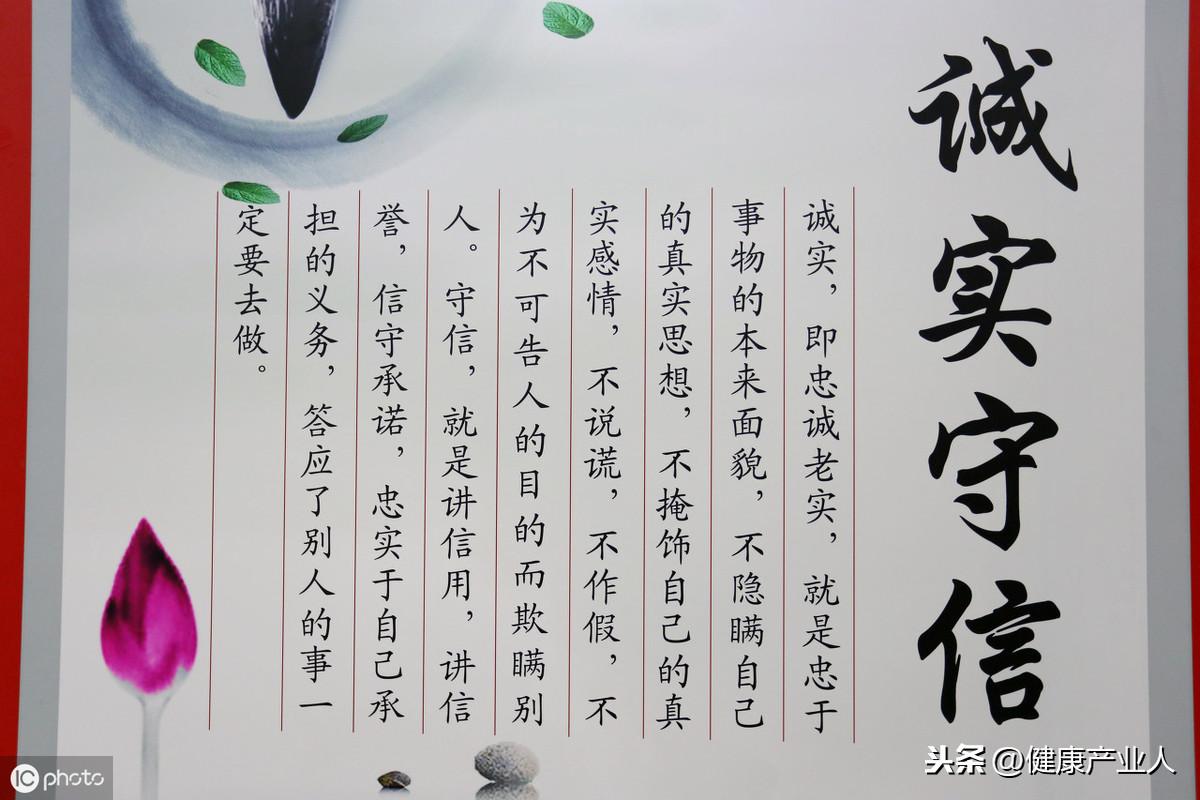 诚实守信
诚实，即忠诚老实，就是忠于
事物的本来面貌，不隐瞒自己
的真实思想，不掩饰自己的真
实感情，不说谎，不作假，不
为不可告人的目的而欺瞒别
人。守信，就是讲信用，讲信
誉，信守承诺，忠实于自己承
担的义务，答应了别人的事一
定要去做。
IC photo
头条 @健康产业人